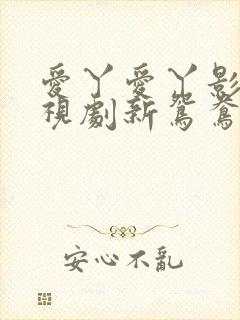 愛丫愛丫影
視劇新鴛鴦
安心不亂